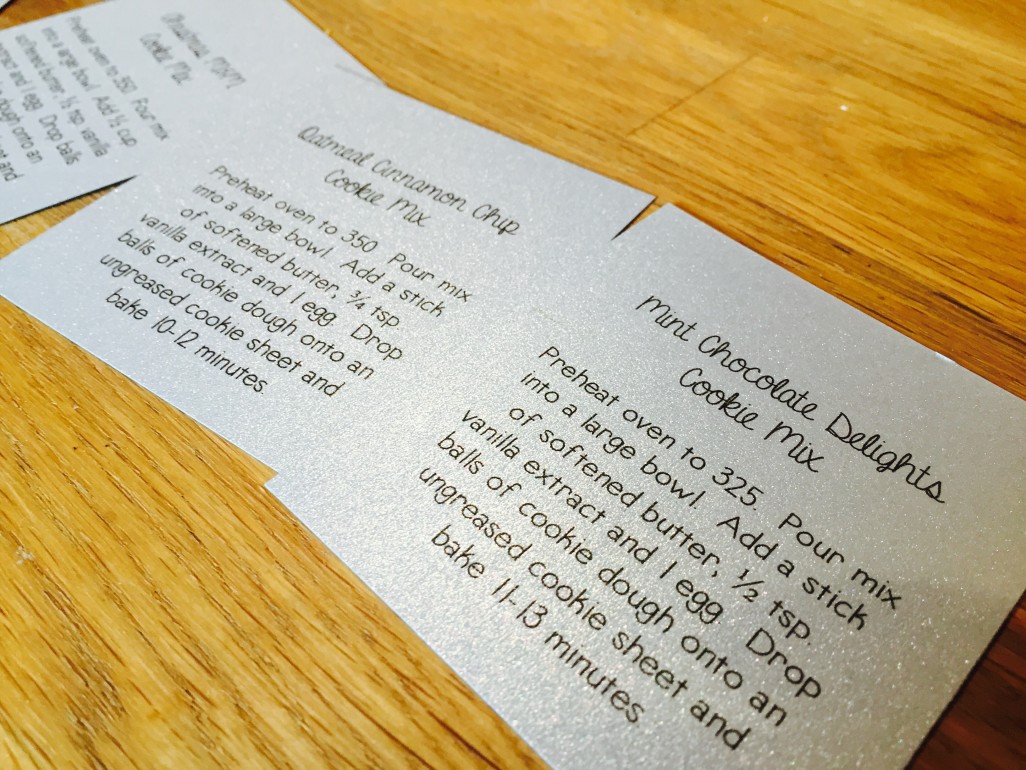 Cookie Mix
Preheat oven to 350 Pour mix
into a large bowl. Add ½ cup
softened butter, tsp vanilla
and 1 egg. Drop balls
dough onto an
and
Oatmeal Cinnamon Chip
Cookie Mix
Preheat oven to 350 Pour mix
into a large bowl. Add a stick
of softened butter, ¾ tsp
vanilla extract and 1 egg. Drop
balls of cookie dough onto an
ungreased cookie sheet and
bake 10-12 minutes.
Mint Chocolate Delights
Cookie Mix
Preheat oven to 325. Pour mix
into a large bowl. Add a stick
of softened butter, ½ tsp.
vanilla extract and 1 egg. Drop
balls of cookie dough onto an
ungreased cookie sheet and
bake 11-13 minutes.